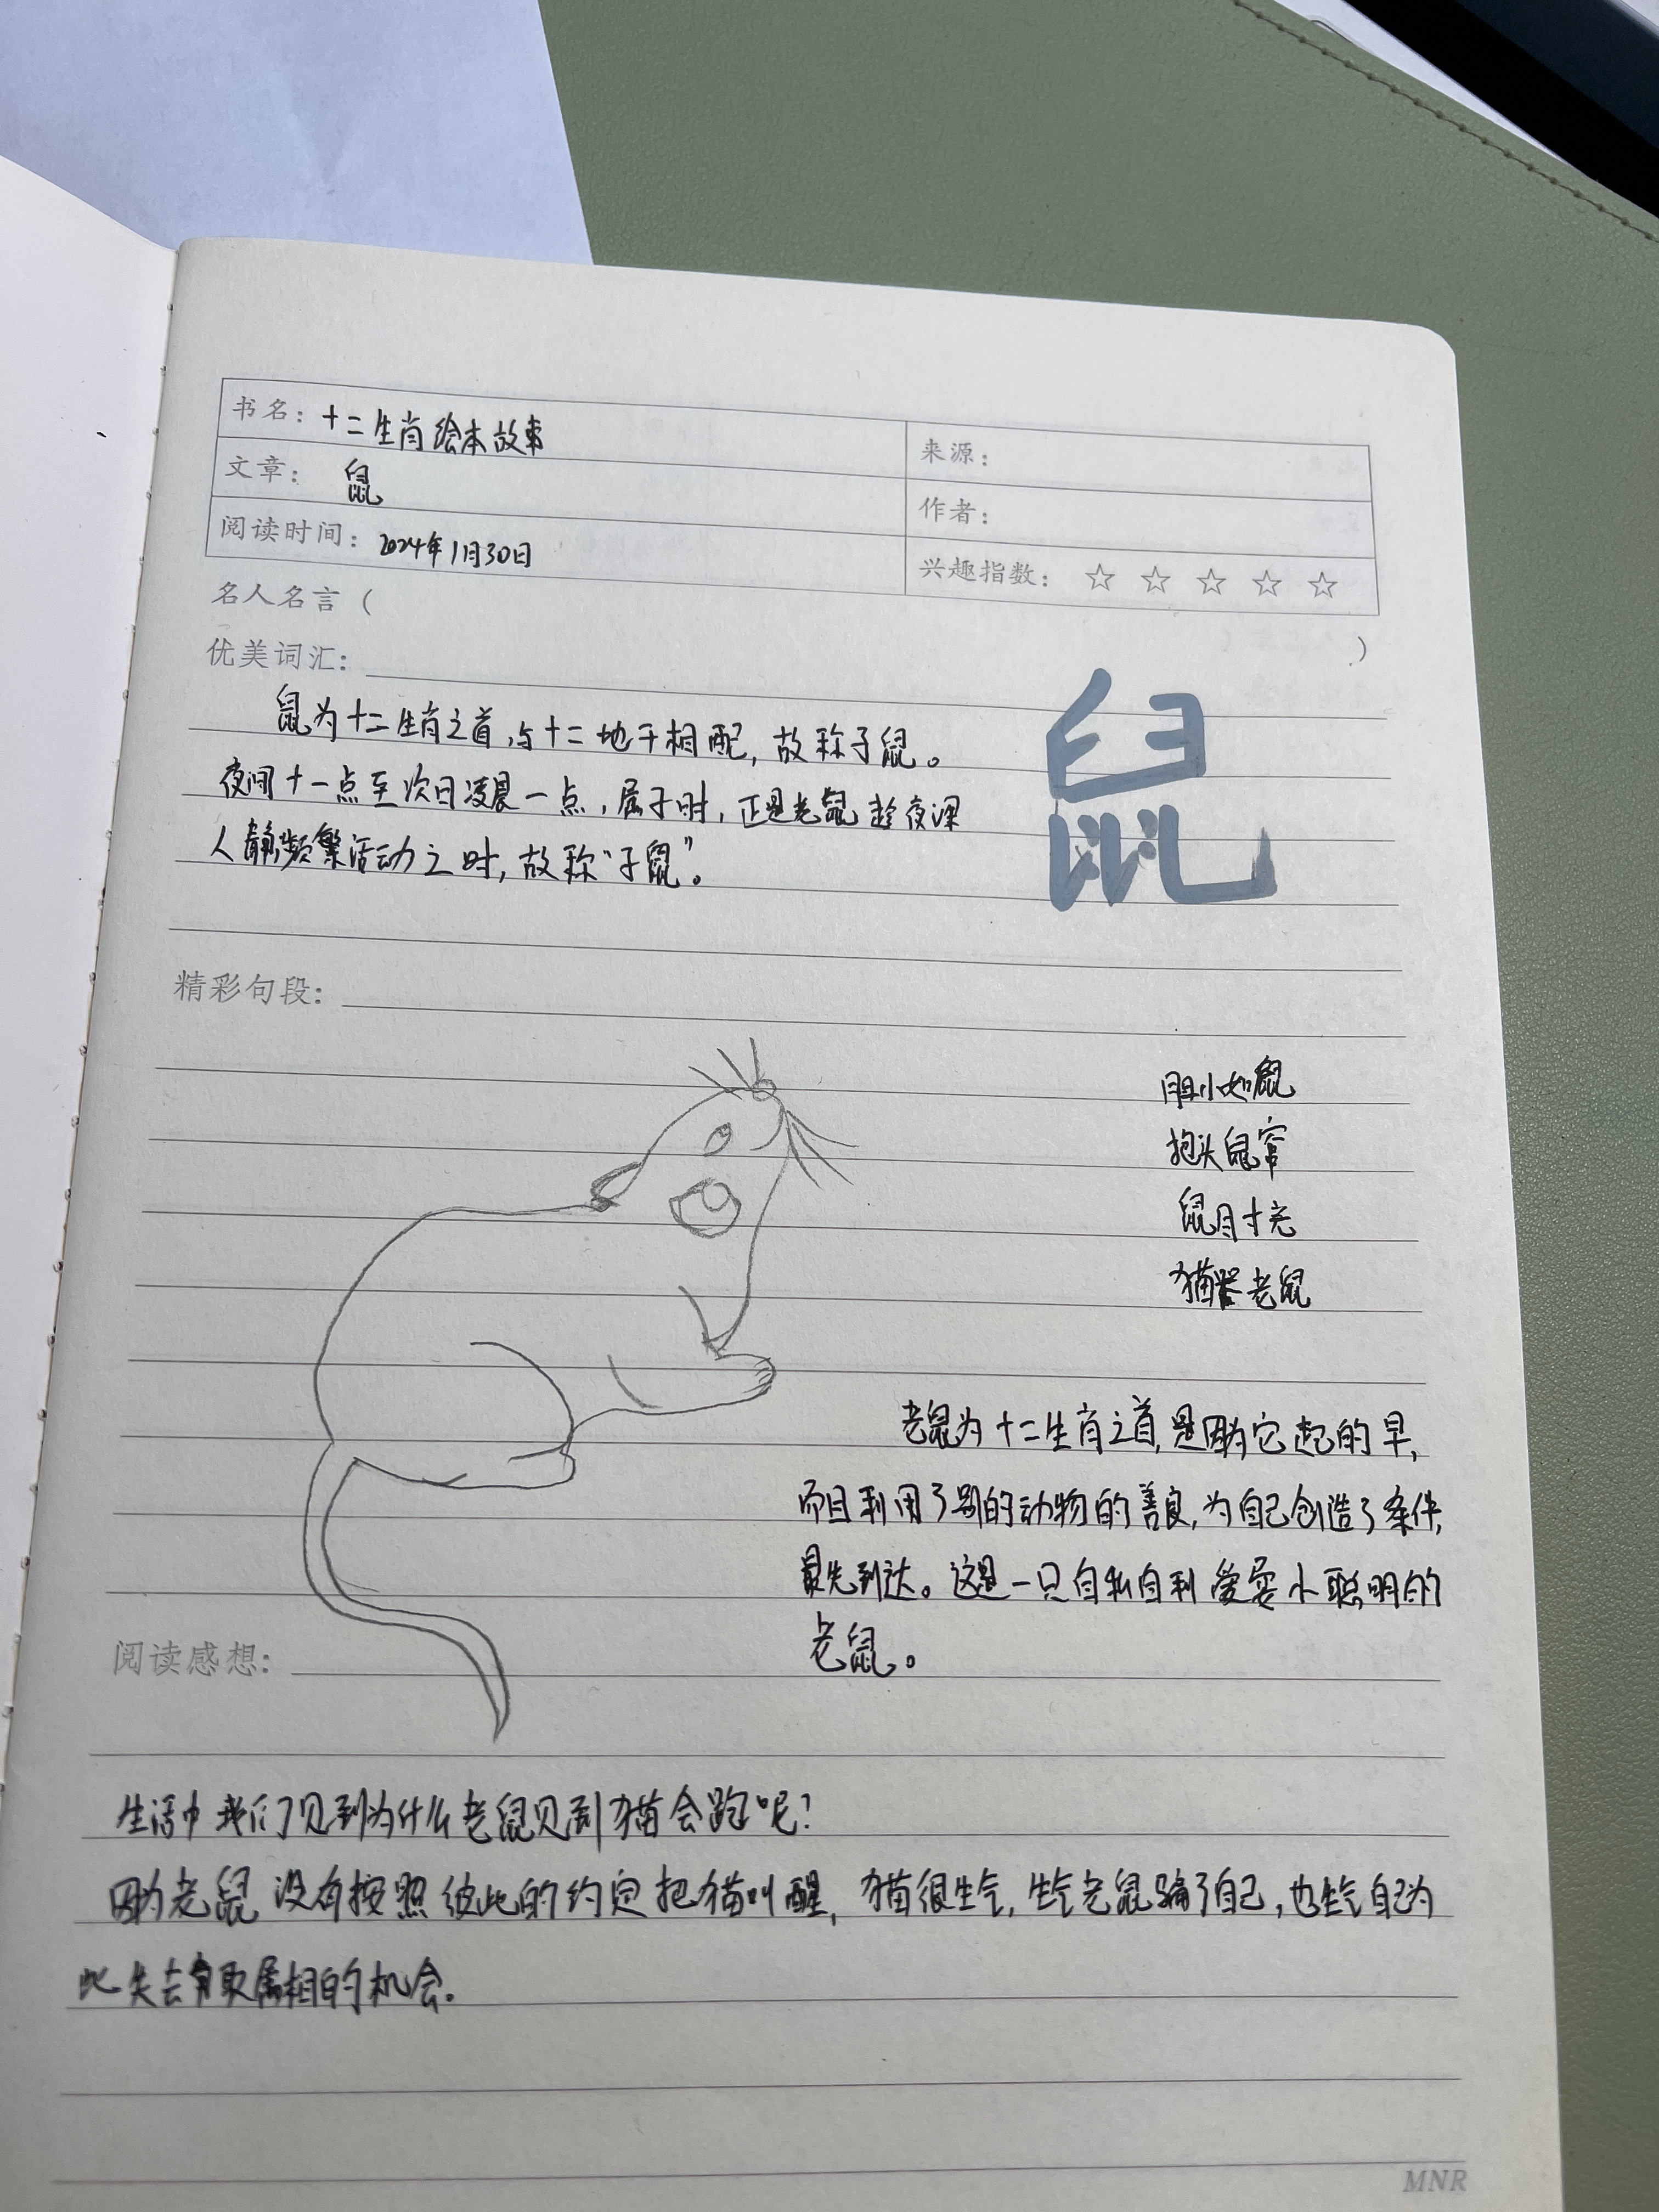 书名：十二生肖绘本故事
来源：
文章：鼠
作者：
阅读时间：2024年1月30日
兴趣指数：☆ ☆ ☆ ☆ ☆
名人名言（
）
优美词汇：
鼠为十二生肖之首，与十二地干相配，故称子鼠。
夜间十一点至次日凌晨一点，属子时，正是老鼠趁夜深
人静频繁活动之时，故称“子鼠”。
鼠
精彩句段：
胆小如鼠
抱头鼠窜
鼠目寸光
猫哭老鼠
老鼠为十二生肖之首，是因为它起的早，
而且利用了别的动物的善良，为自己创造了条件，
最先到达。这是一只自私自利爱耍小聪明的
老鼠。
阅读感想：
生活中我们了见到为什么老鼠见到猫会跑呢？
因为老鼠没有按照彼此的约定把猫叫醒，猫很生气，生气老鼠骗了自己，也生气自己为
此失去争取属相的机会。
MNR